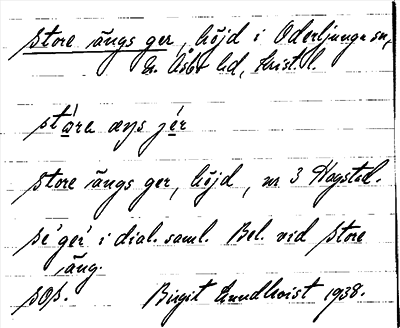 store ängs ger, höjd i Oderljunga sn,
N. Åsbo hd, Krist. l.
stara æŋs jér
store ängs ger, höjd, nr 3 Kogstad.
se´ger´ i dial. saml. Bel. vid store
äng.
sos. Birgit Lundkvist 1938.